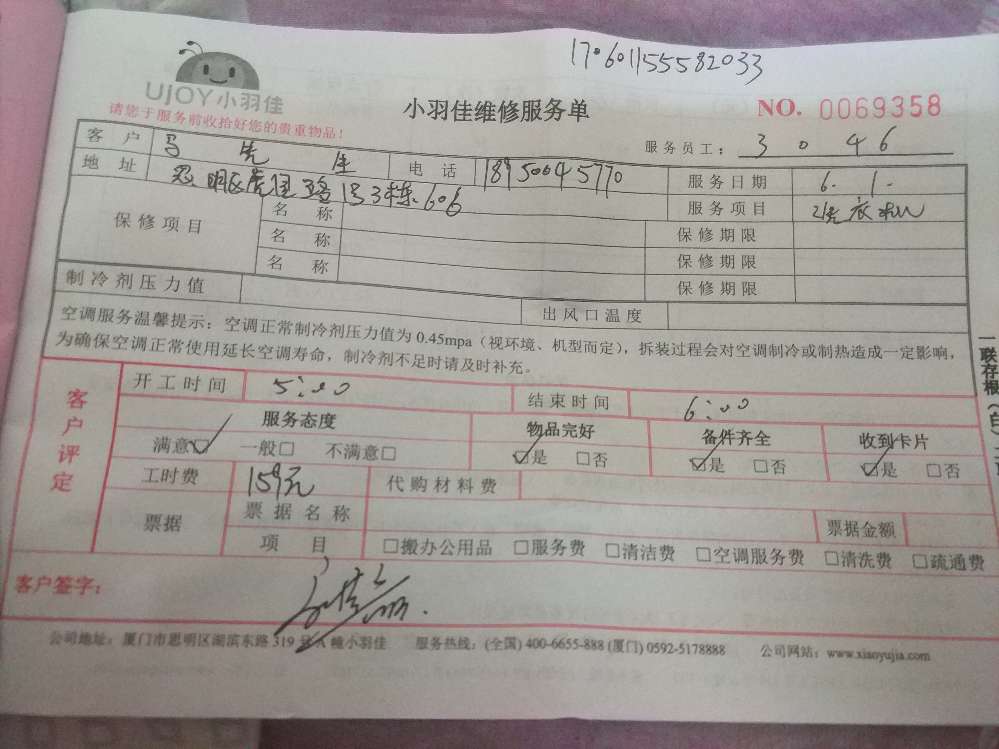 170601155582033
UJOY小羽佳
请您于服务前收拾好您的贵重物品！
小羽佳维修服务单
NO. 0069358
服务员工： 3046
客户 马先生 电话 18950045770 服务日期 6.1.
地址 思明区虎园路 号3栋606 服务项目 洗衣机
保修项目 名称 保修期限
名称 保修期限
名称 保修期限
制冷剂压力值 出风口温度
空调服务温馨提示：空调正常制冷剂压力值为 0.45mpa（视环境、机型而定），拆装过程会对空调制冷或制热造成一定影响，
为确保空调正常使用延长空调寿命，制冷剂不足时请及时补充。
客户评定
开工时间 5:00 结束时间 6:00
服务态度 物品完好 备件齐全 收到卡片
满意☑ 一般□ 不满意□ ☑是 □否 ☑是 □否 ☑是 □否
工时费 159元 代购材料费
票据 票据名称 票据金额
项目 □搬办公用品 □服务费 □清洁费 □空调服务费 □清洗费 □疏通费
客户签字：
公司地址：厦门市思明区湖滨东路 319 号 A 幢小羽佳 服务热线：(全国) 400-6655-888 (厦门) 0592-5178888 公司网站：www.xiaoyujia.com
一联存根（白）